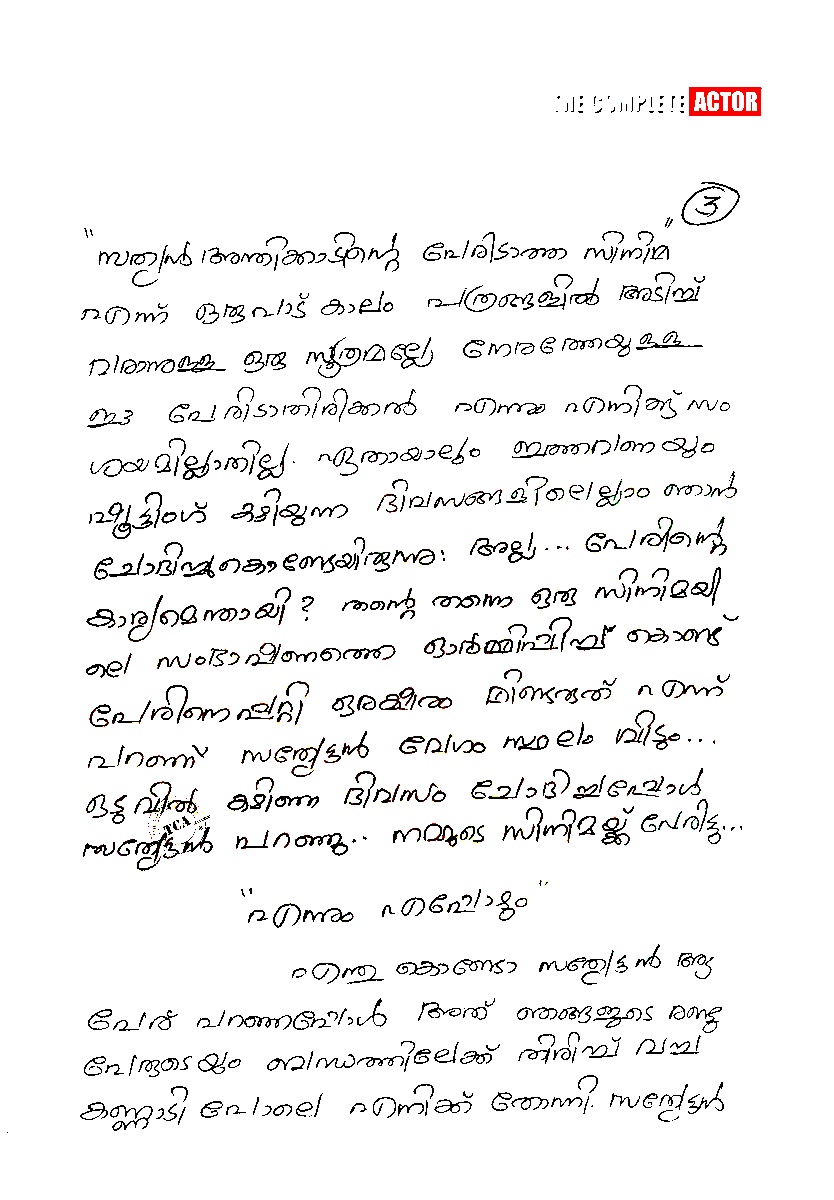 THE COMPLETE ACTOR
3
"സത്യൻ അന്തിക്കാടിന്റെ പേരിടാത്ത സിനിമ"
എന്ന് ഒരുപാട് കാലം പത്രങ്ങളിൽ അടിച്ച്
വരാനുള്ള ഒരു സൂത്രമല്ലേ നേരത്തേയുള്ള
ഈ പേരിടാതിരിക്കൽ എന്നും എനിക്ക് സം
ശയമില്ലാതില്ല. ഏതായാലും ഇത്തവണയും
ഷൂട്ടിംഗ് കഴിയുന്ന ദിവസങ്ങളിലെല്ലാം ഞാൻ
ചോദിച്ചുകൊണ്ടേയിരുന്നു: അല്ല... പേരിന്റെ
കാര്യമെന്തായി? തന്റെ തന്നെ ഒരു സിനിമയി
ലെ സംഭാഷണത്തെ ഓർമ്മിപ്പിച്ച് കൊണ്ട്
പേരിനെപ്പറ്റി ഒരക്ഷരം മിണ്ടരുത് എന്ന്
പറഞ്ഞ് സത്യേട്ടൻ വേഗം സ്ഥലം വിടും...
ഒടുവിൽ കഴിഞ്ഞ ദിവസം ചോദിച്ചപ്പോൾ
സത്യേട്ടൻ പറഞ്ഞു.. നമ്മുടെ സിനിമയ്ക്ക് പേരിട്ടു...
TCA
"എന്നും എപ്പോഴും"
എന്തു കൊണ്ടോ സത്യേട്ടൻ ആ
പേര് പറഞ്ഞപ്പോൾ അത് ഞങ്ങളുടെ രണ്ടു
പേരുടെയും ബന്ധത്തിലേക്ക് തിരിച്ച് വച്ച
കണ്ണാടി പോലെ എനിക്ക് തോന്നി. സത്യേട്ടൻ